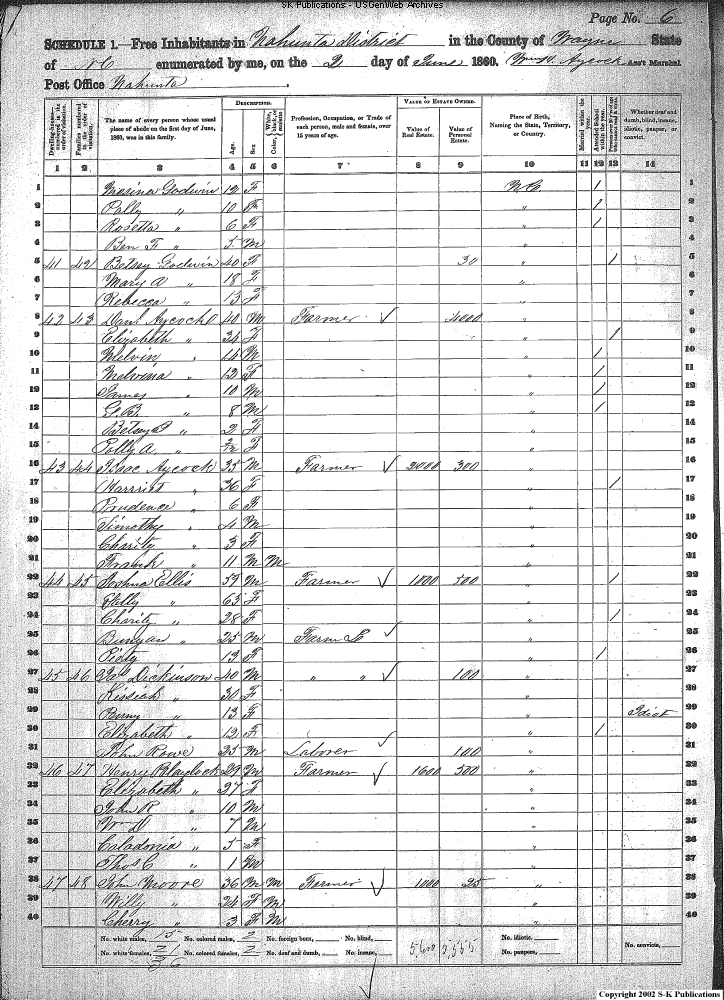 SK Publications - USGenWeb Archives
Page No. 6
SCHEDULE 1.—Free Inhabitants in Nahunta District in the County of Wayne State
of NC enumerated by me, on the 2 day of June 1860. Aycock Ass't Marshal
Post Office Nahunta.
Dwelling-houses—numbered in the order of visitation.
Families numbered in the order of visitation.
The name of every person whose usual place of abode on the first day of June, 1860, was in this family.
DESCRIPTION.
Age.
Sex.
Color, White, black, or mulatto.
Profession, Occupation, or Trade of each person, male and female, over 15 years of age.
VALUE OF ESTATE OWNED.
Value of Real Estate.
Value of Personal Estate.
Place of Birth, Naming the State, Territory, or Country.
Married within the year.
Attended School within the year.
Whether deaf and dumb, blind, insane, idiotic, pauper, or convict.
1 2 3 4 5 6 7 8 9 10 11 12 13 14
1 Godwin 12 F N C / 1
2 Polly " 10 F " / 2
3 Rosetta " 6 F " / 3
4 Ben F " 5 M " 4
5 41 42 Betsay Godwin 40 F 30 " / 5
6 Mary A " 18 F " 6
7 Rebecca " 13 F " 7
8 42 43 Danl Aycock 40 M Farmer 4000 " 8
9 Elizabeth " 34 F " / 9
10 Melvin " 14 M " / 10
11 Melvina " 12 F " / 11
12 James " 10 M " / 12
13 " 8 M " / 13
14 " 2 F " 14
15 Polly A. " F " 15
16 43 44 Isaac Aycock 35 M Farmer 2000 300 " 16
17 Harriett " 36 F " / 17
18 Prudence " 6 F " 18
19 Timothy " 4 M " 19
20 Charity " 3 F " 20
21 Frank " 11 M M " 21
22 44 45 Joshua Ellis 59 M Farmer 1000 500 " / 22
23 " 63 F " 23
24 Charity " 28 F " / 24
25 Bunyan " 25 M Farm L " 25
26 Piety " 13 F " / 26
27 45 46 Jas Dickinson 40 M " " 100 " 27
28 Kissiah " 30 F " 28
29 " 13 F " Idiot 29
30 Elizabeth " 12 F " / 30
31 John Rowe 25 M Laborer 100 " 31
32 46 47 Henry Blaylock 29 M Farmer 1600 500 " 32
33 Elizabeth " 27 F " 33
34 John R " 10 M " 34
35 Wm D " 7 M " 35
36 Caladonia " 5 F " 36
37 Thos C " 1 M " 37
38 47 48 John Moore 36 M M Farmer 1000 25 " 38
39 Willy " 24 F M " 39
40 Cherry " 3 F M " 40
No. white males, 15 No. colored males, 2 No. foreign born, No. blind, No. idiotic,
No. white females, 21 No. colored females, 2 No. deaf and dumb, No. insane, 5,600 No. paupers, No. convicts,
36
Copyright 2002 S-K Publications